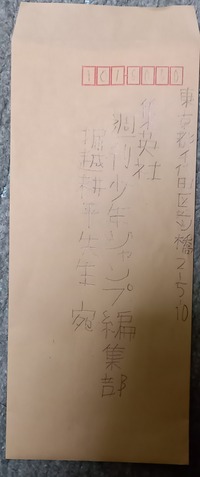 東京都千代田区一ツ橋2-5-10
集英社
週刊少年ジャンプ編集部
堀越耕平先生 宛